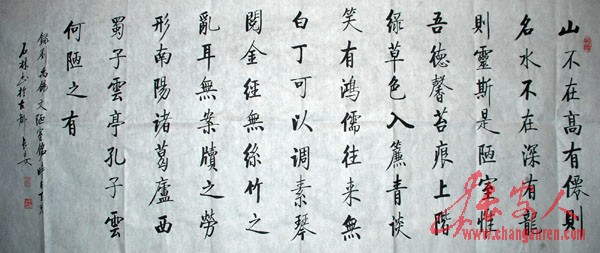 山不在髙有僊則
名水不在深有龍
則靈斯是陋室惟
吾德馨苔痕上階
綠草色入簾青谈
笑有鴻儒往来無
白丁可以调素琴
閱金經無絲竹之
亂耳無案牘之勞
形南陽諸葛廬西
蜀子雲亭孔子雲
何陋之有
錄劉禹錫文陋室銘時
石林書於古都長安
长安人
www.changanren.com